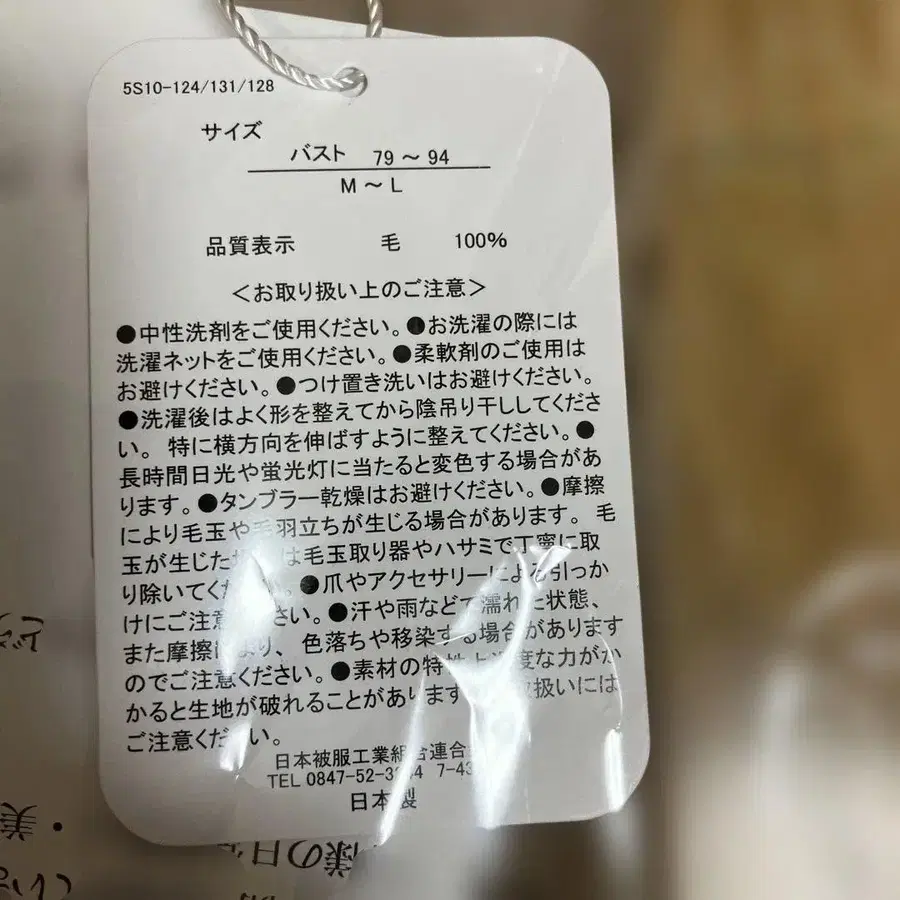 5S10-124/131/128
サイズ
バスト 79～94
M～L
品質表示 毛 100%
＜お取り扱い上のご注意＞
●中性洗剤をご使用ください。●お洗濯の際には
洗濯ネットをご使用ください。●柔軟剤のご使用は
お避けください。●つけ置き洗いはお避けください。
●洗濯後はよく形を整えてから陰吊り干ししてくださ
い。 特に横方向を伸ばすように整えてください。●
長時間日光や蛍光灯に当たると変色する場合があ
ります。●タンブラー乾燥はお避けください。●摩擦
により毛玉や毛羽立ちが生じる場合があります。 毛
玉が生じた は毛玉取り器やハサミで丁寧に取
り除いてくだ い。●爪やアクセサリーによる引っか
けにご注意 さい。●汗や雨などで濡れた状態、
また摩擦により、 色落ちや移染する場合があります
のでご注意ください。●素材の特性上 度な力がか
かると生地が破れることがあります 取扱いには
ご注意ください。
日本被服工業組合連合
TEL 0847-52-3 4 7-43
日本製
様の日
美